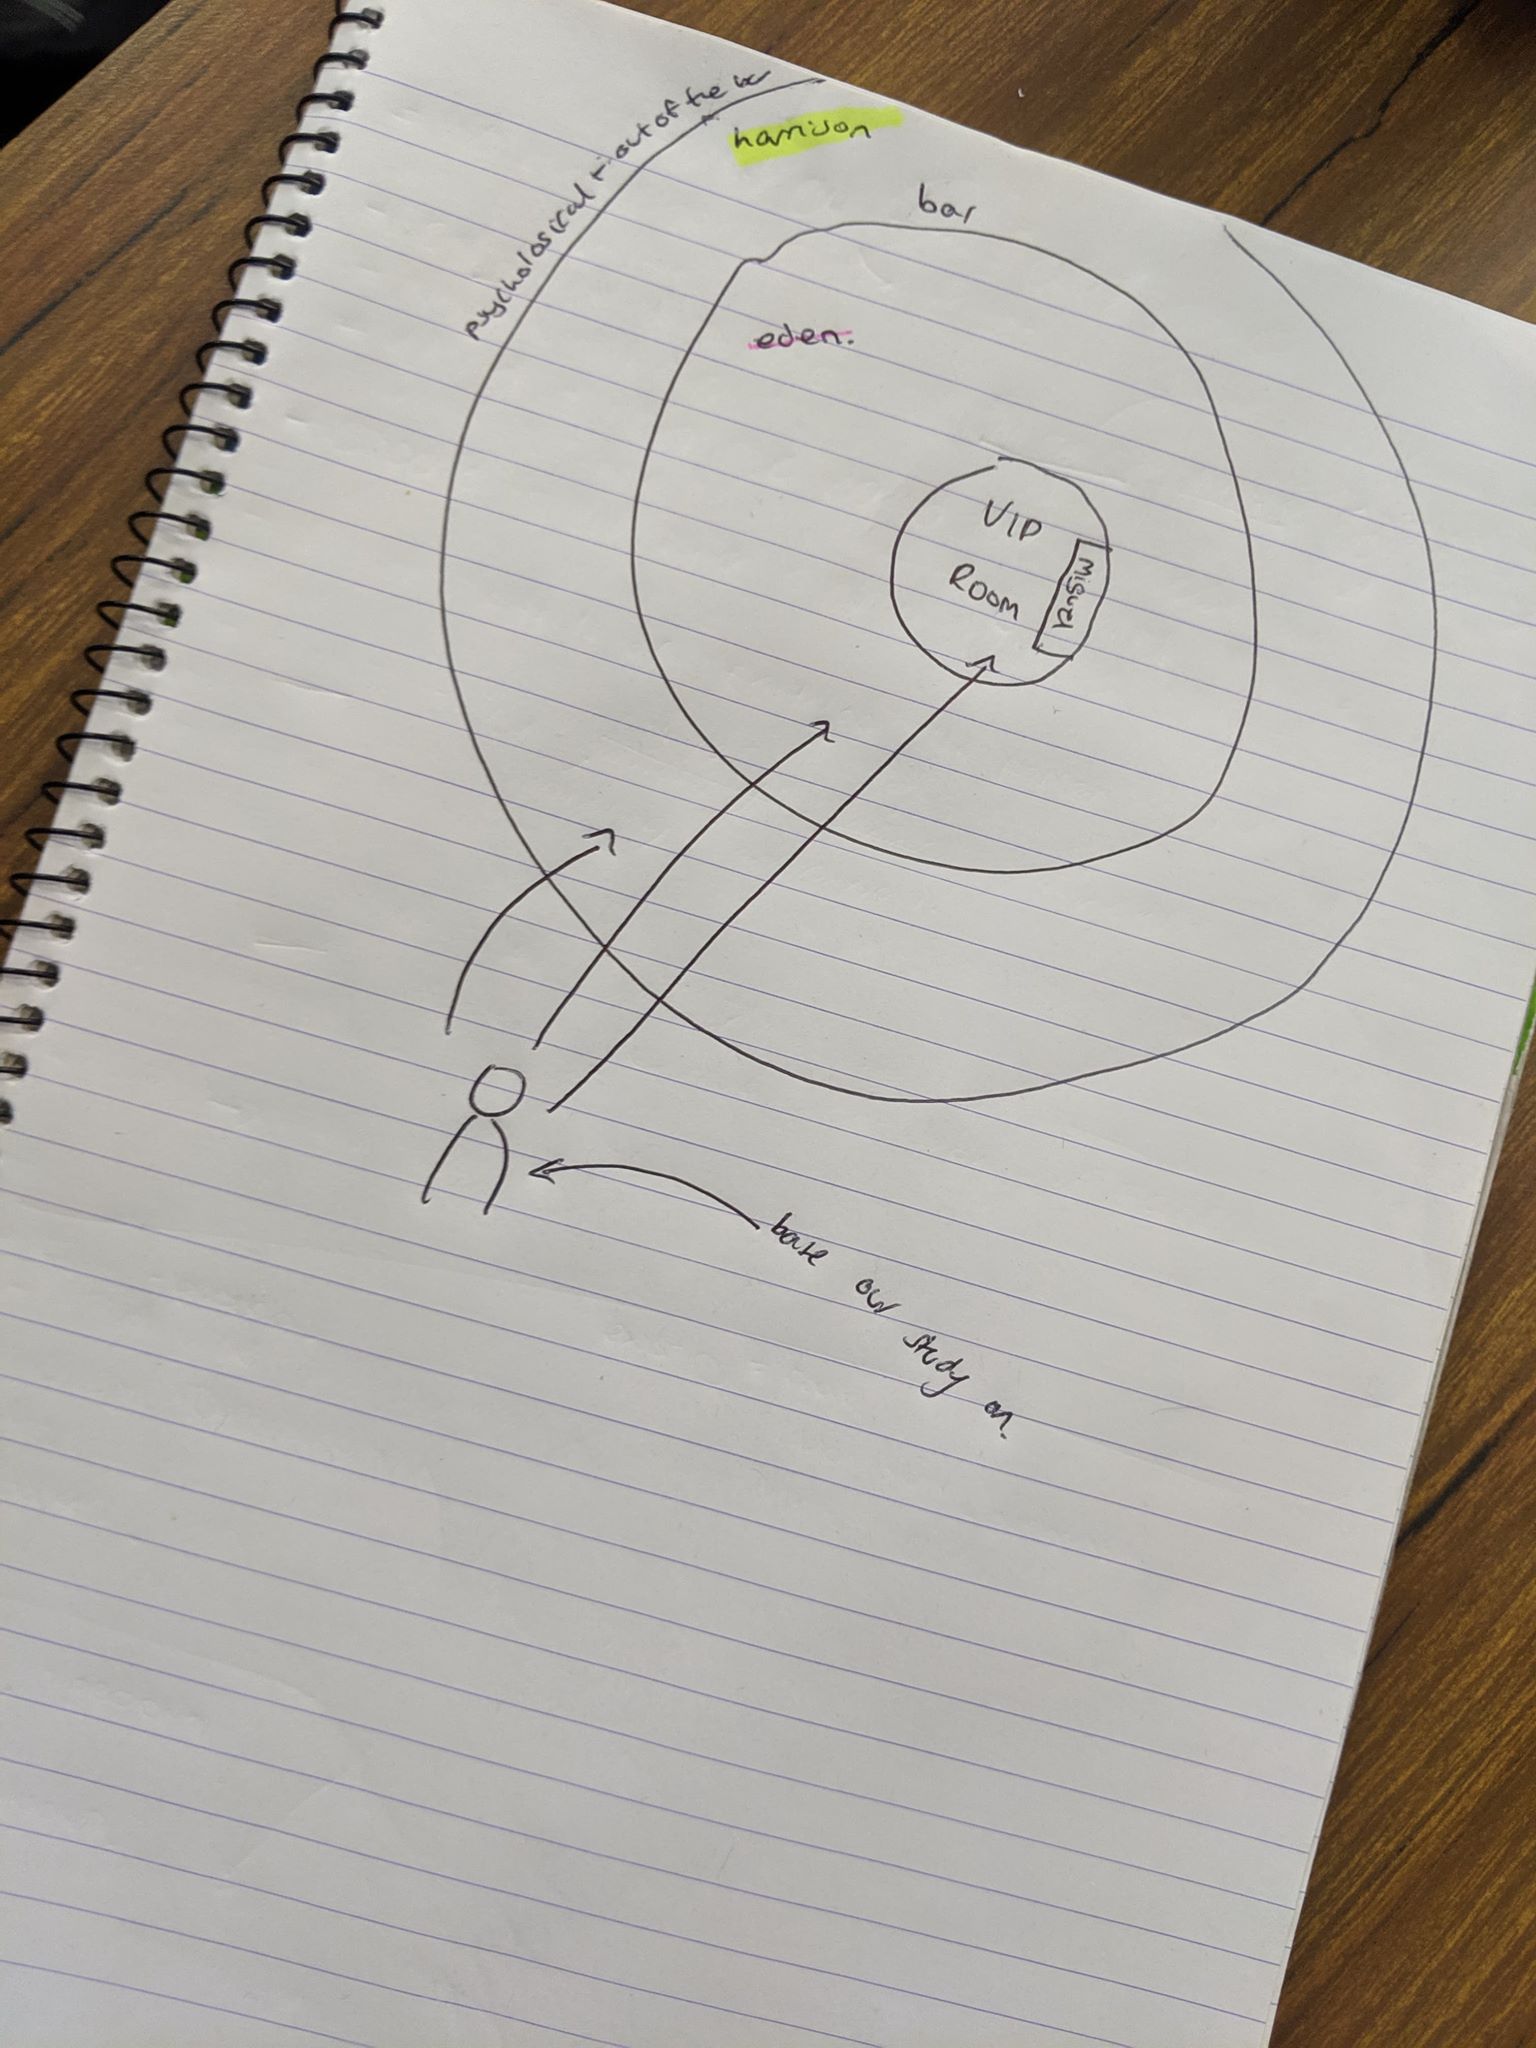 psychological + out of the bar
harrison
bar
eden.
VIP
ROOM
Miguel
base our study on.